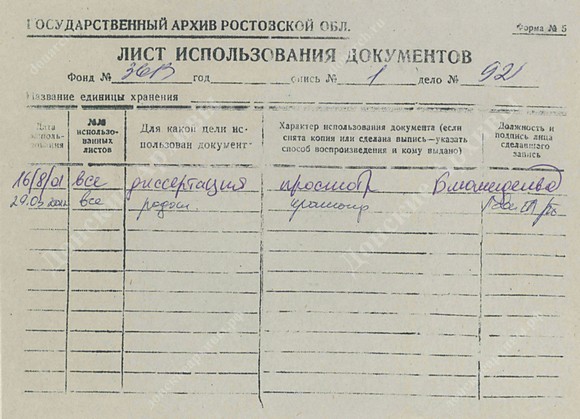 ГОСУДАРСТВЕННЫЙ АРХИВ РОСТОВСКОЙ ОБЛ.
Форма № 5
ЛИСТ ИСПОЛЬЗОВАНИЯ ДОКУМЕНТОВ
Фонд № год опись № 1 дело № 92
Название единицы хранения
Дата исполь- зования
№№ использо- ванных листов
Для какой цели ис- пользован документ
Характер использования документа (если снята копия или сделана выпись—указать способ воспроизведения и кому выдано)
Должность и подпись лица сделавшего запись
16/8/01 все диссертация просмотр
все просмотр